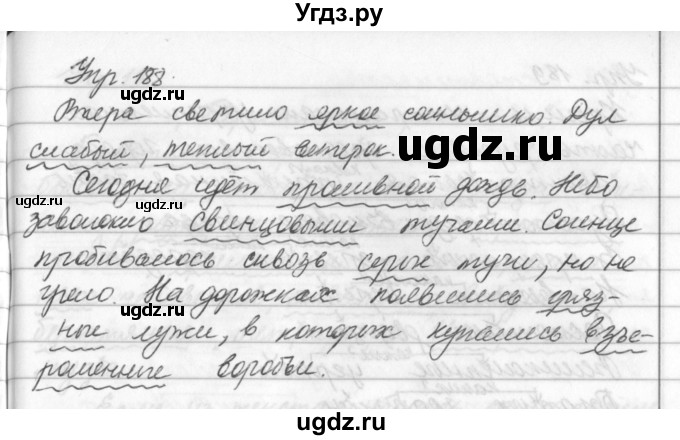 Угдз.ру
Упр. 188.
Вчера светило яркое солнышко. Дул
слабый, теплый ветерок.
Сегодня идёт проливной дождь. Небо
заволокло свинцовыми тучами. Солнце
пробивалось сквозь серые тучи, но не
грело. На дорожках появились гряз-
ные лужи, в которых купались взъе-
рошенные воробьи.
ugdz.ru
ugdz.ru
ugdz.ru
ugdz.ru
ugdz.ru
ugdz.ru
ugdz.ru